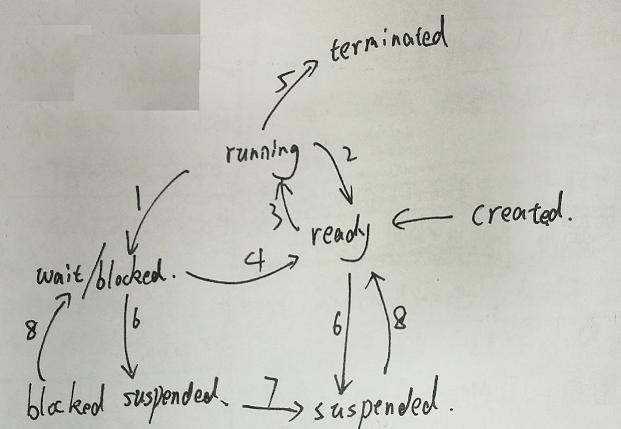 terminated
5
running
2
1
3
created.
ready
wait/blocked.
4
6
6
8
8
blocked suspended.
7
suspended.